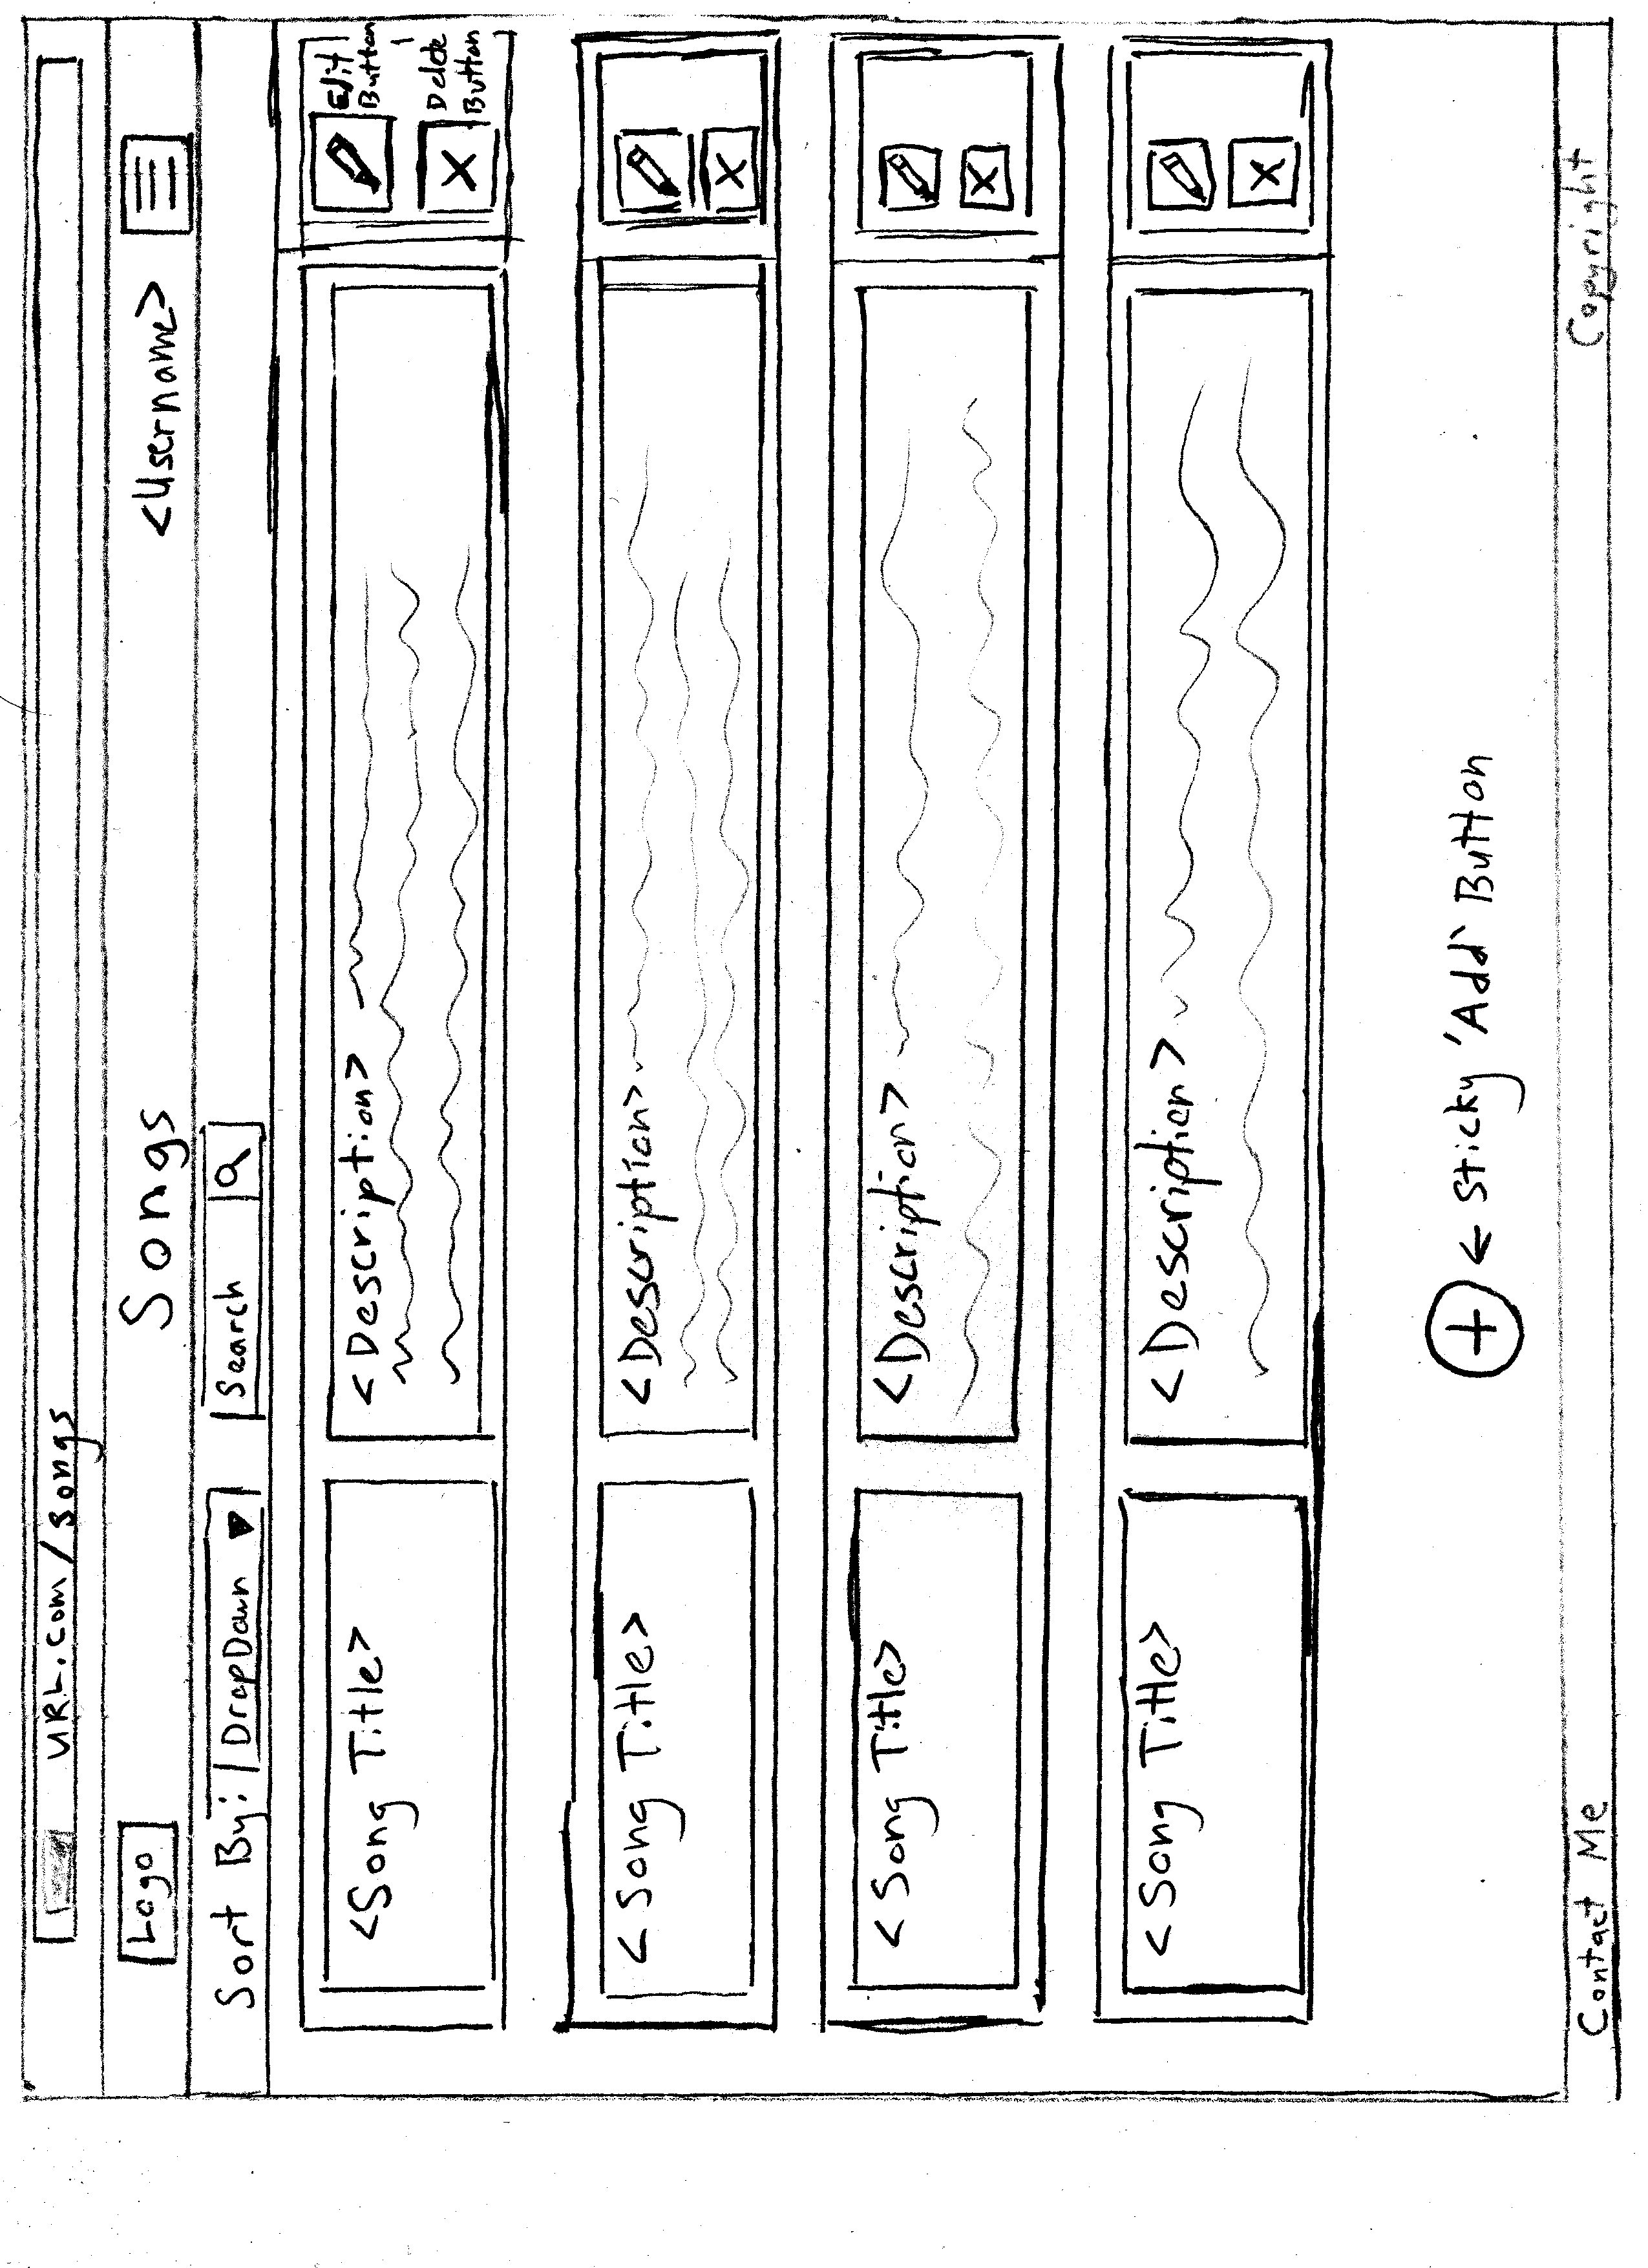 URL.com/songs
Logo
Songs
<Username>
Sort By: DropDown
Search
<Song Title>
<Description>
Edit
Button
Delete
Button
<Song Title>
<Description>
<Song Title>
<Description>
<Song Title>
<Description>
+ ← Sticky 'Add' Button
Contact Me
Copyright